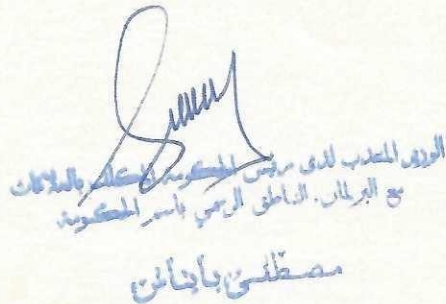 الوزير المنتدب لدى رئيس الحكومة المكلف بالعلاقات
مع البرلمان، الناطق الرسمي باسم الحكومة
مصطفى بايتاس